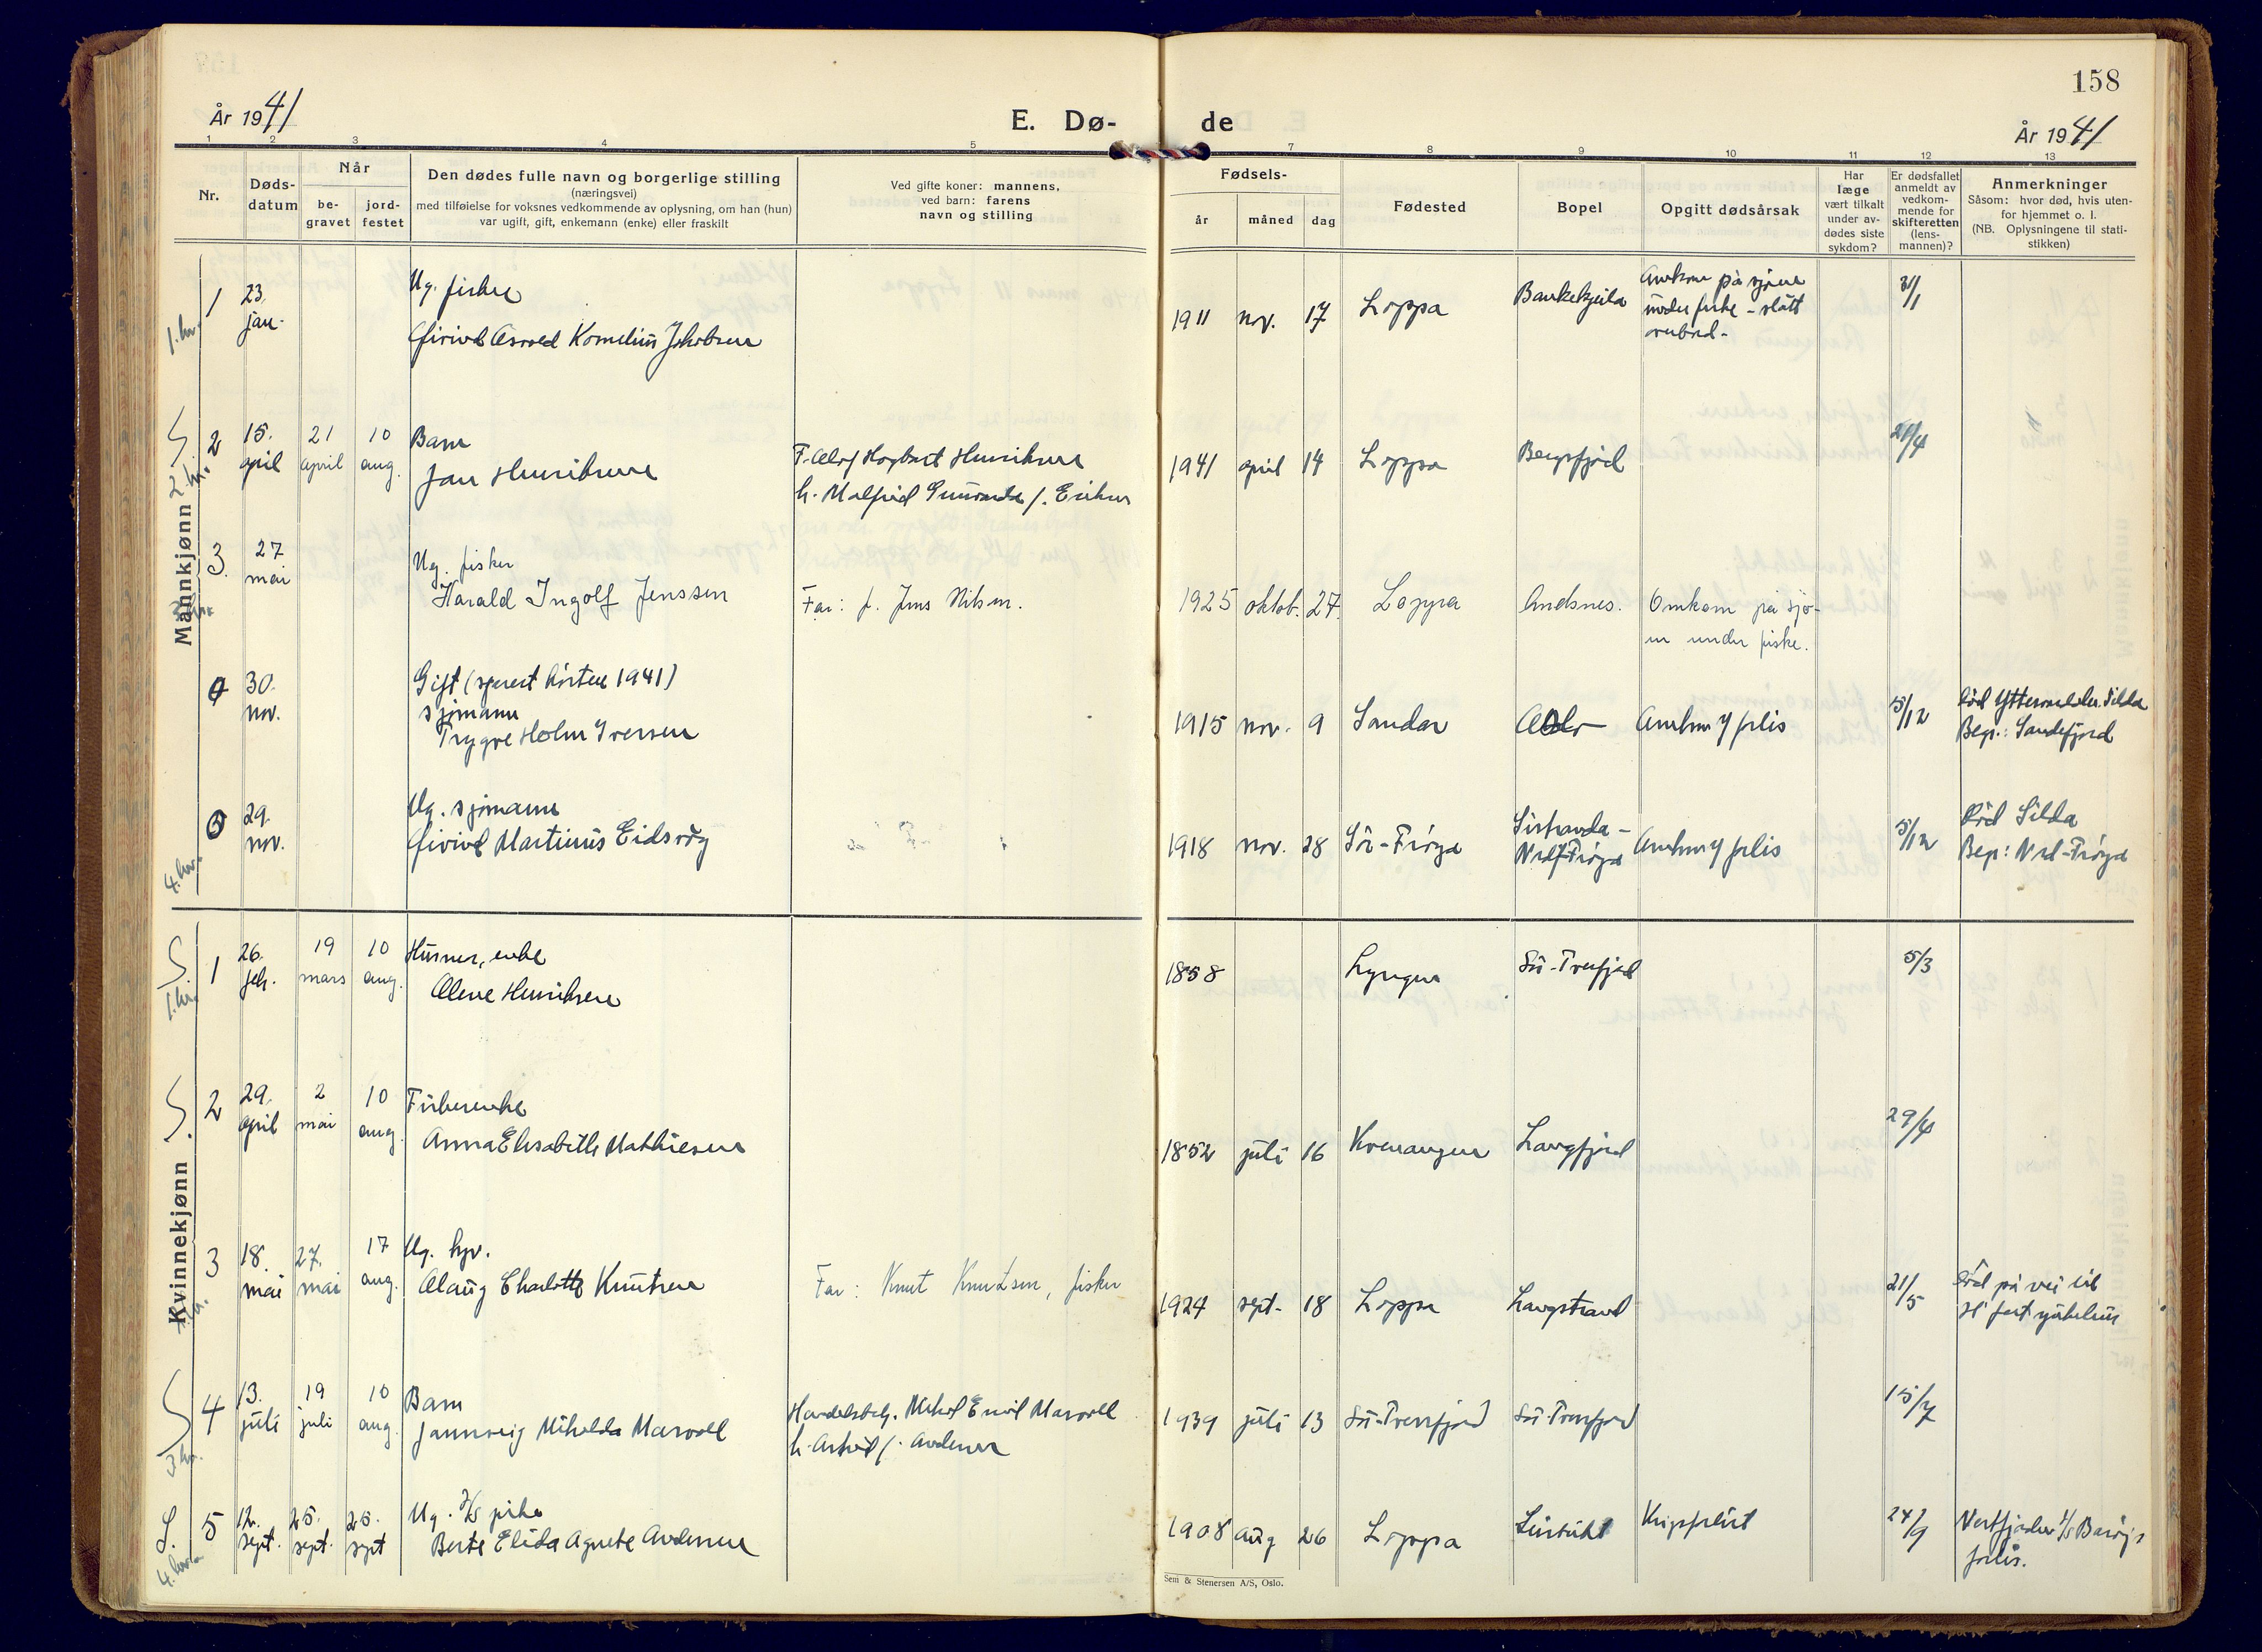 158
År 1941
E. Dø-
de
År 1941
1 2 3 4 5 7 8 9 10 11 12 13
Nr.
Døds-
datum
Når
be-
gravet
jord-
festet
Den dødes fulle navn og borgerlige stilling
(næringsvei)
med tilføielse for voksnes vedkommende av oplysning, om han (hun)
var ugift, gift, enkemann (enke) eller fraskilt
Ved gifte koner: mannens,
ved barn: farens
navn og stilling
Fødsels-
år
måned
dag
Fødested
Bopel
Opgitt dødsårsak
Har
læge
vært tilkalt
under av-
dødes siste
sykdom?
Er dødsfallet
anmeldt av
vedkom-
mende for
skifteretten
(lens-
mannen)?
Anmerkninger
Såsom: hvor død, hvis uten-
for hjemmet o. l.
(NB. Oplysningene til stati-
stikken)
Mannkjønn
1. kv.
1
23.
jan.
Ug. fisker
Eivind Kornelius Jakobsen
1911 nov. 17 Loppa
Omkom på sjøen
under fiske - slått
overbord -
31/1
S
2. kv.
2
15.
april
21
april
10
aug.
Barn
Jan Henriksen
F. Olaf Hagbart Henriksen
h. Malfrid f. Eriksen
1941 april 14 Loppa Bergsfjord
21/4
3.
27
mai
Ug. fisker
Harald Ingolf Jenssen
Far: f. Jens Nilsen.
1925 oktob. 27. Loppa Andsnes.
Omkom på sjø-
en under fiske.
4
30.
nov.
Gift (senest høsten 1941)
sjømann
Trygve Holm Iversen
1915 nov. 9 Sandar Oslo
5/12
Død Silda
Begr.: Sandefjord
4. kv.
5
29.
nov.
Ug. sjømann
Eivind Martinus Eidsvåg
1918 nov. 28 Sør-Frøya
Sistranda -
Nord-Frøya
5/12
Død Silda
Begr: Nord-Frøya
Kvinnekjønn
S.
1. kv.
1
26.
feb.
19
mars
10
aug.
Husmor, enke
Olene Henriksen
1858 Lyngen
5/3
S.
2
29.
april
2
mai
10
aug.
Fiskerenke
Anna Elisabeth Mathiesen
1852 juli 16 Kvenangen Langfjord
29/4
3
18.
mai
27.
mai
17
aug.
Ug. hjv.
Olaug Charlotte Knutsen
Far: Knut Knutsen, fisker
1924 sept. 18 Loppa Langstrand
21/5
Død på vei til
H.fest sykehus
S
3 kv.
4
13.
juli
19
juli
10
aug.
Barn
Jannveig Mikolda Marvoll
Handelsbetj. Mikal Emil Marvoll
h. Astrid f. Andersen
1939 juli 13
15/7
S.
4. kv.
5
12.
sept.
25.
sept.
25.
sept
Ug. pike
Berte Elida Agnete Andersen
1908 aug 26 Loppa
Krigsforlist
24/9
forlis.
Sem & Stenersen A/S, Oslo.